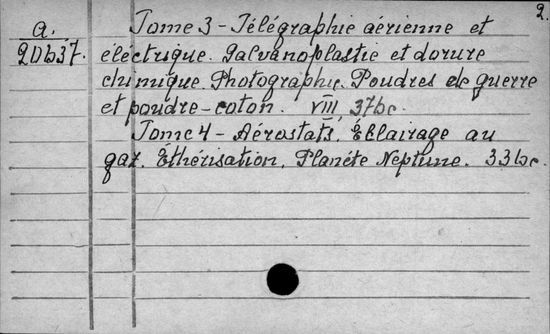 2.
a. Tome 3 - Télégraphie aérienne et
20b37. eléctrique. Galvanoplastie et dorure
chimique. Photographie. Poudres de guerre
et poudre-coton. VIII, 376c.
Tome 4 - Aérostats. Éclairage au
gaz. Ethérisation. Planéte Neptune. 336c.